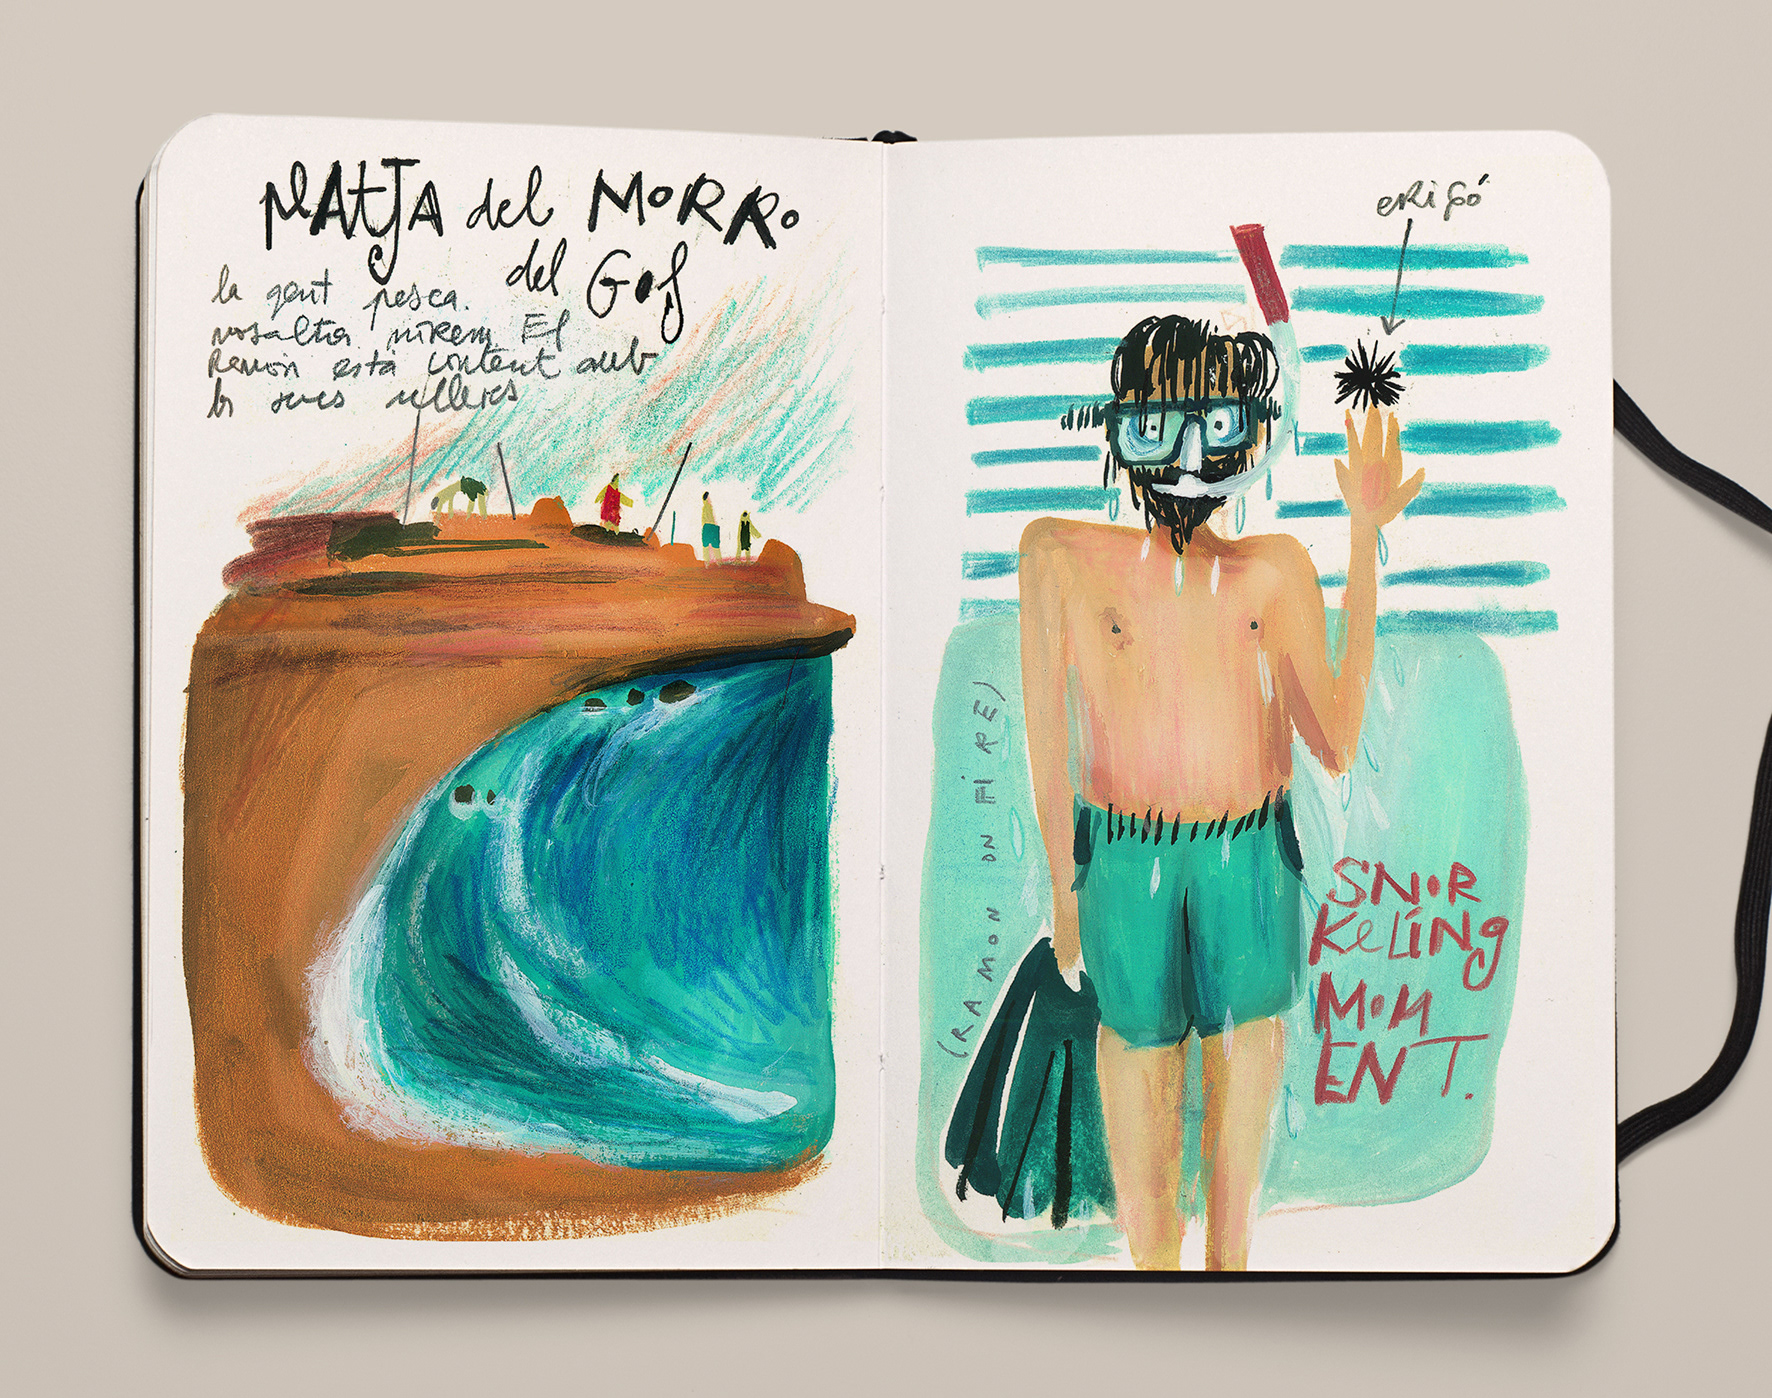 PlAtJA del MoRRo
del Gos
la gent pesca.
nosaltres mirem. El
Ramon està content amb
les seves ulleres
eRiSó
(RAMON ON FiRE)
SNoR
KeLiNg
MoM
ENT.